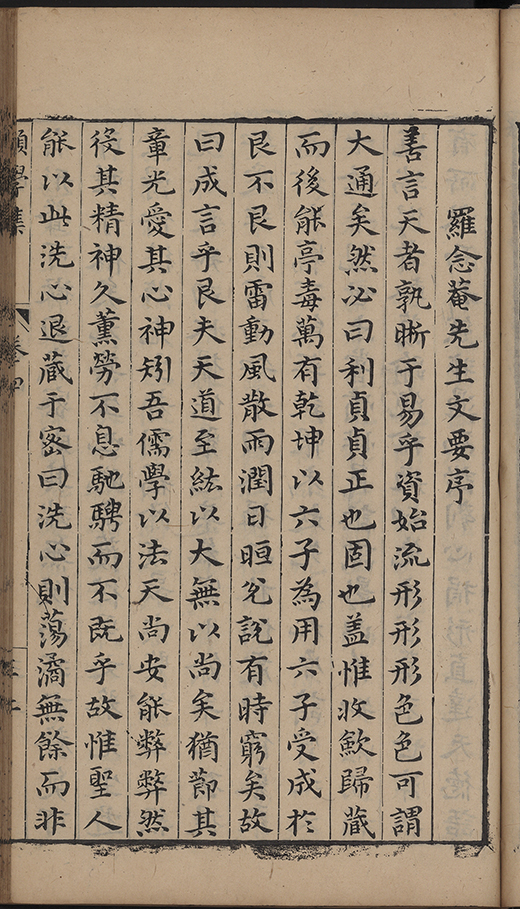 羅念菴先生文要序
善言天者孰晰于易乎資始流形形形色色可謂
大通矣然必曰利貞貞正也固也蓋惟收歛歸藏
而後能亭毒萬有乾坤以六子為用六子受成於
艮不艮則雷動風散雨潤日晅兌說有時窮矣故
曰成言乎艮夫天道至紘以大無以尚矣猶節其
章光愛其心神矧吾儒學以法天尚安能弊弊然
役其精神久薰勞不息馳騁而不既乎故惟聖人
能以此洗心退藏于密曰洗心則蕩潏無餘而非
願學集
卷四